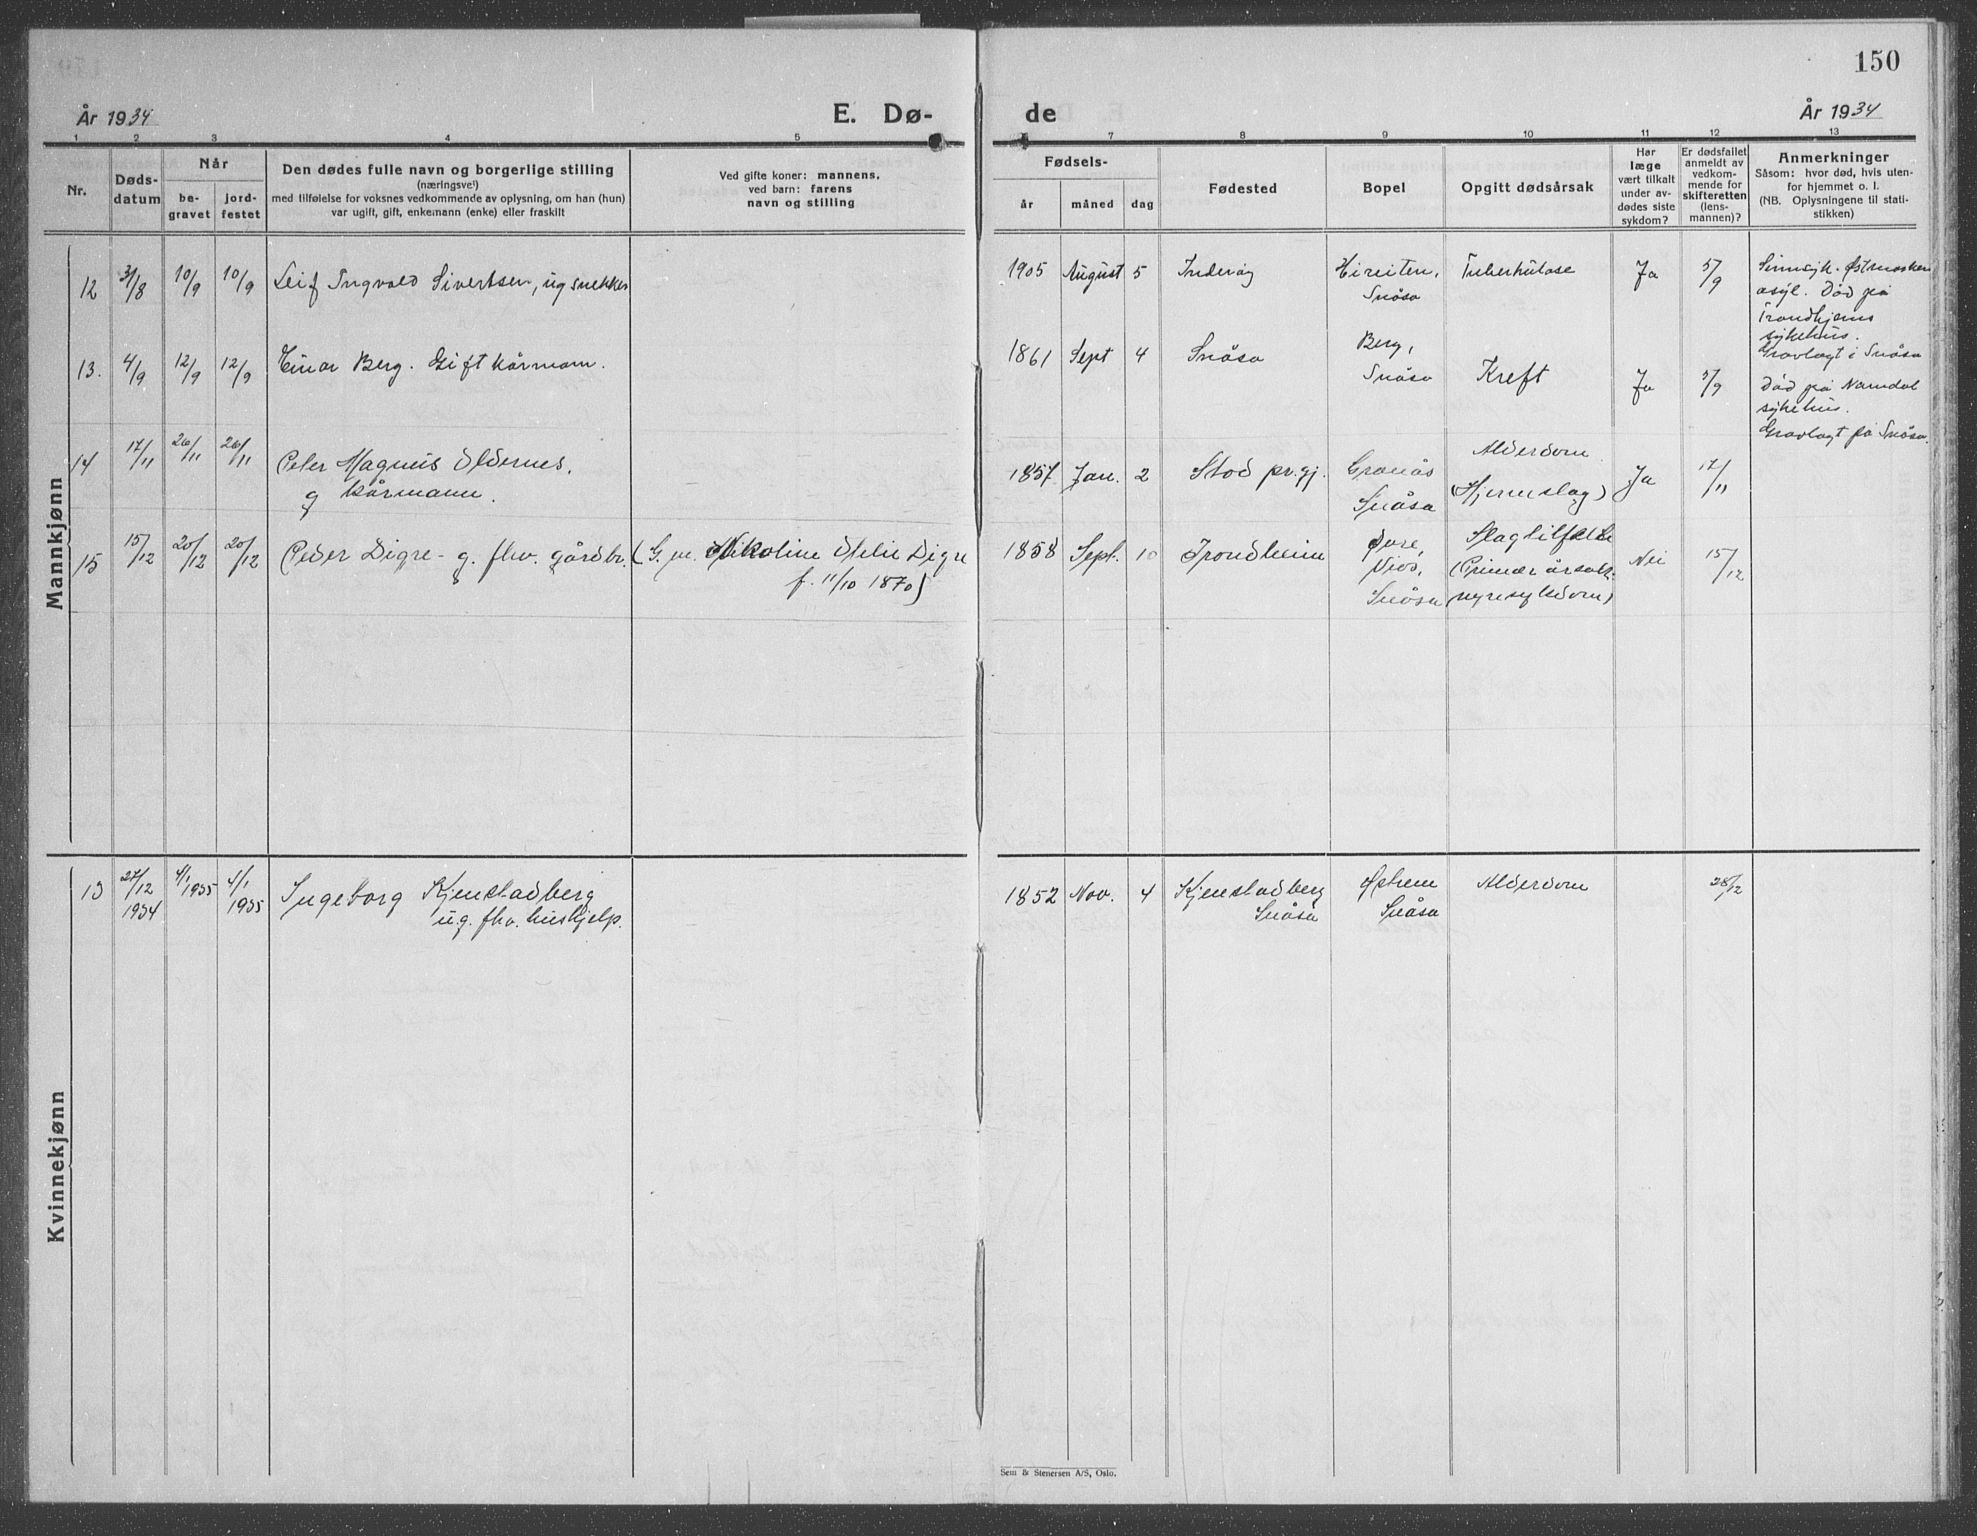 150
År 1934
E. Dø-
de
År 1934
1 2 3 4 5 7 8 9 10 11 12 13
Nr.
Døds-
datum
Når
be-
gravet
jord-
festet
Den dødes fulle navn og borgerlige stilling
(næringsvei)
med tilføielse for voksnes vedkommende av oplysning, om han (hun)
var ugift, gift, enkemann (enke) eller fraskilt
Ved gifte koner: mannens,
ved barn: farens
navn og stilling
Fødsels-
år
måned
dag
Fødested
Bopel
Opgitt dødsårsak
Har
læge
vært tilkalt
under av-
dødes siste
sykdom?
Er dødsfallet
anmeldt av
vedkom-
mende for
skifteretten
(lens-
mannen)?
Anmerkninger
Såsom: hvor død, hvis uten-
for hjemmet o. l.
(NB. Oplysningene til stati-
stikken)
Mannkjønn
12 31/8 10/9 10/9 Leif Ingvald Sivertsen, ug snekker 1905 August 5 Inderøy
Snåsa
Tuberkulose Ja 5/9
Sinnsyk. Østmarken
asyl. Død på
Trondhjems
sykehus.
Gravlagt i Snåsa
13. 4/9 12/9 12/9 Einar Berg. Gift kårmann. 1861 Sept 4 Snåsa
Berg,
Snåsa
Kreft Ja 5/9
Død på Namdal
sykehus.
Gravlagt på Snåsa.
14 17/11 26/11 26/11 Peter Magnus Oldernes,
g kårmann.
1857 Jan. 2 Stod pr.gj.
Granås
Snåsa
Alderdom
(Hjerneslag)
Ja 17/11
15 15/12 20/12 20/12 Peder Digre - g. fhv. gårdbr. (G. m. Nikoline Otelie Digre
f. 11/10 1870)
1858 Sept. 10 Trondheim
Øvre
Vios,
Snåsa
Slagtilfelle
(Primær årsak:
nyresykdom)
Nei 15/12
Kvinnekjønn
13 27/12 1934 4/1 1935 4/1 1935 Ingeborg Kjenstadberg
ug. fhv. hushjelp.
1852 Nov. 4 Kjenstadberg
Snåsa
Østrem
Snåsa
Alderdom 28/12
Sem & Stenersen A/S, Oslo.